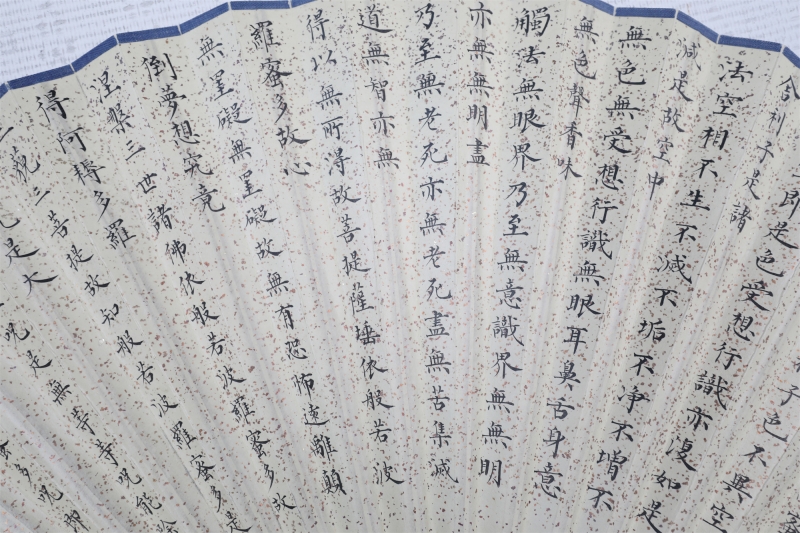 子色不異空
即是色受想行識亦復如是
舍利子是諸
法空相不生不滅不垢不净不增不
減是故空中
無色無受想行識無眼耳鼻舌身意
無色聲香味
觸法無眼界乃至無意識界無無明
亦無無明盡
乃至無老死亦無老死盡無苦集滅
道無智亦無
得以無所得故菩提薩埵依般若波
羅蜜多故心
無罣礙無罣礙故無有恐怖遠離顛
倒夢想究竟
涅槃三世諸佛依般若波羅蜜多故
得阿耨多羅
三藐三菩提故知般若波羅蜜多是
是大
呪是無等等呪能除
多呪即